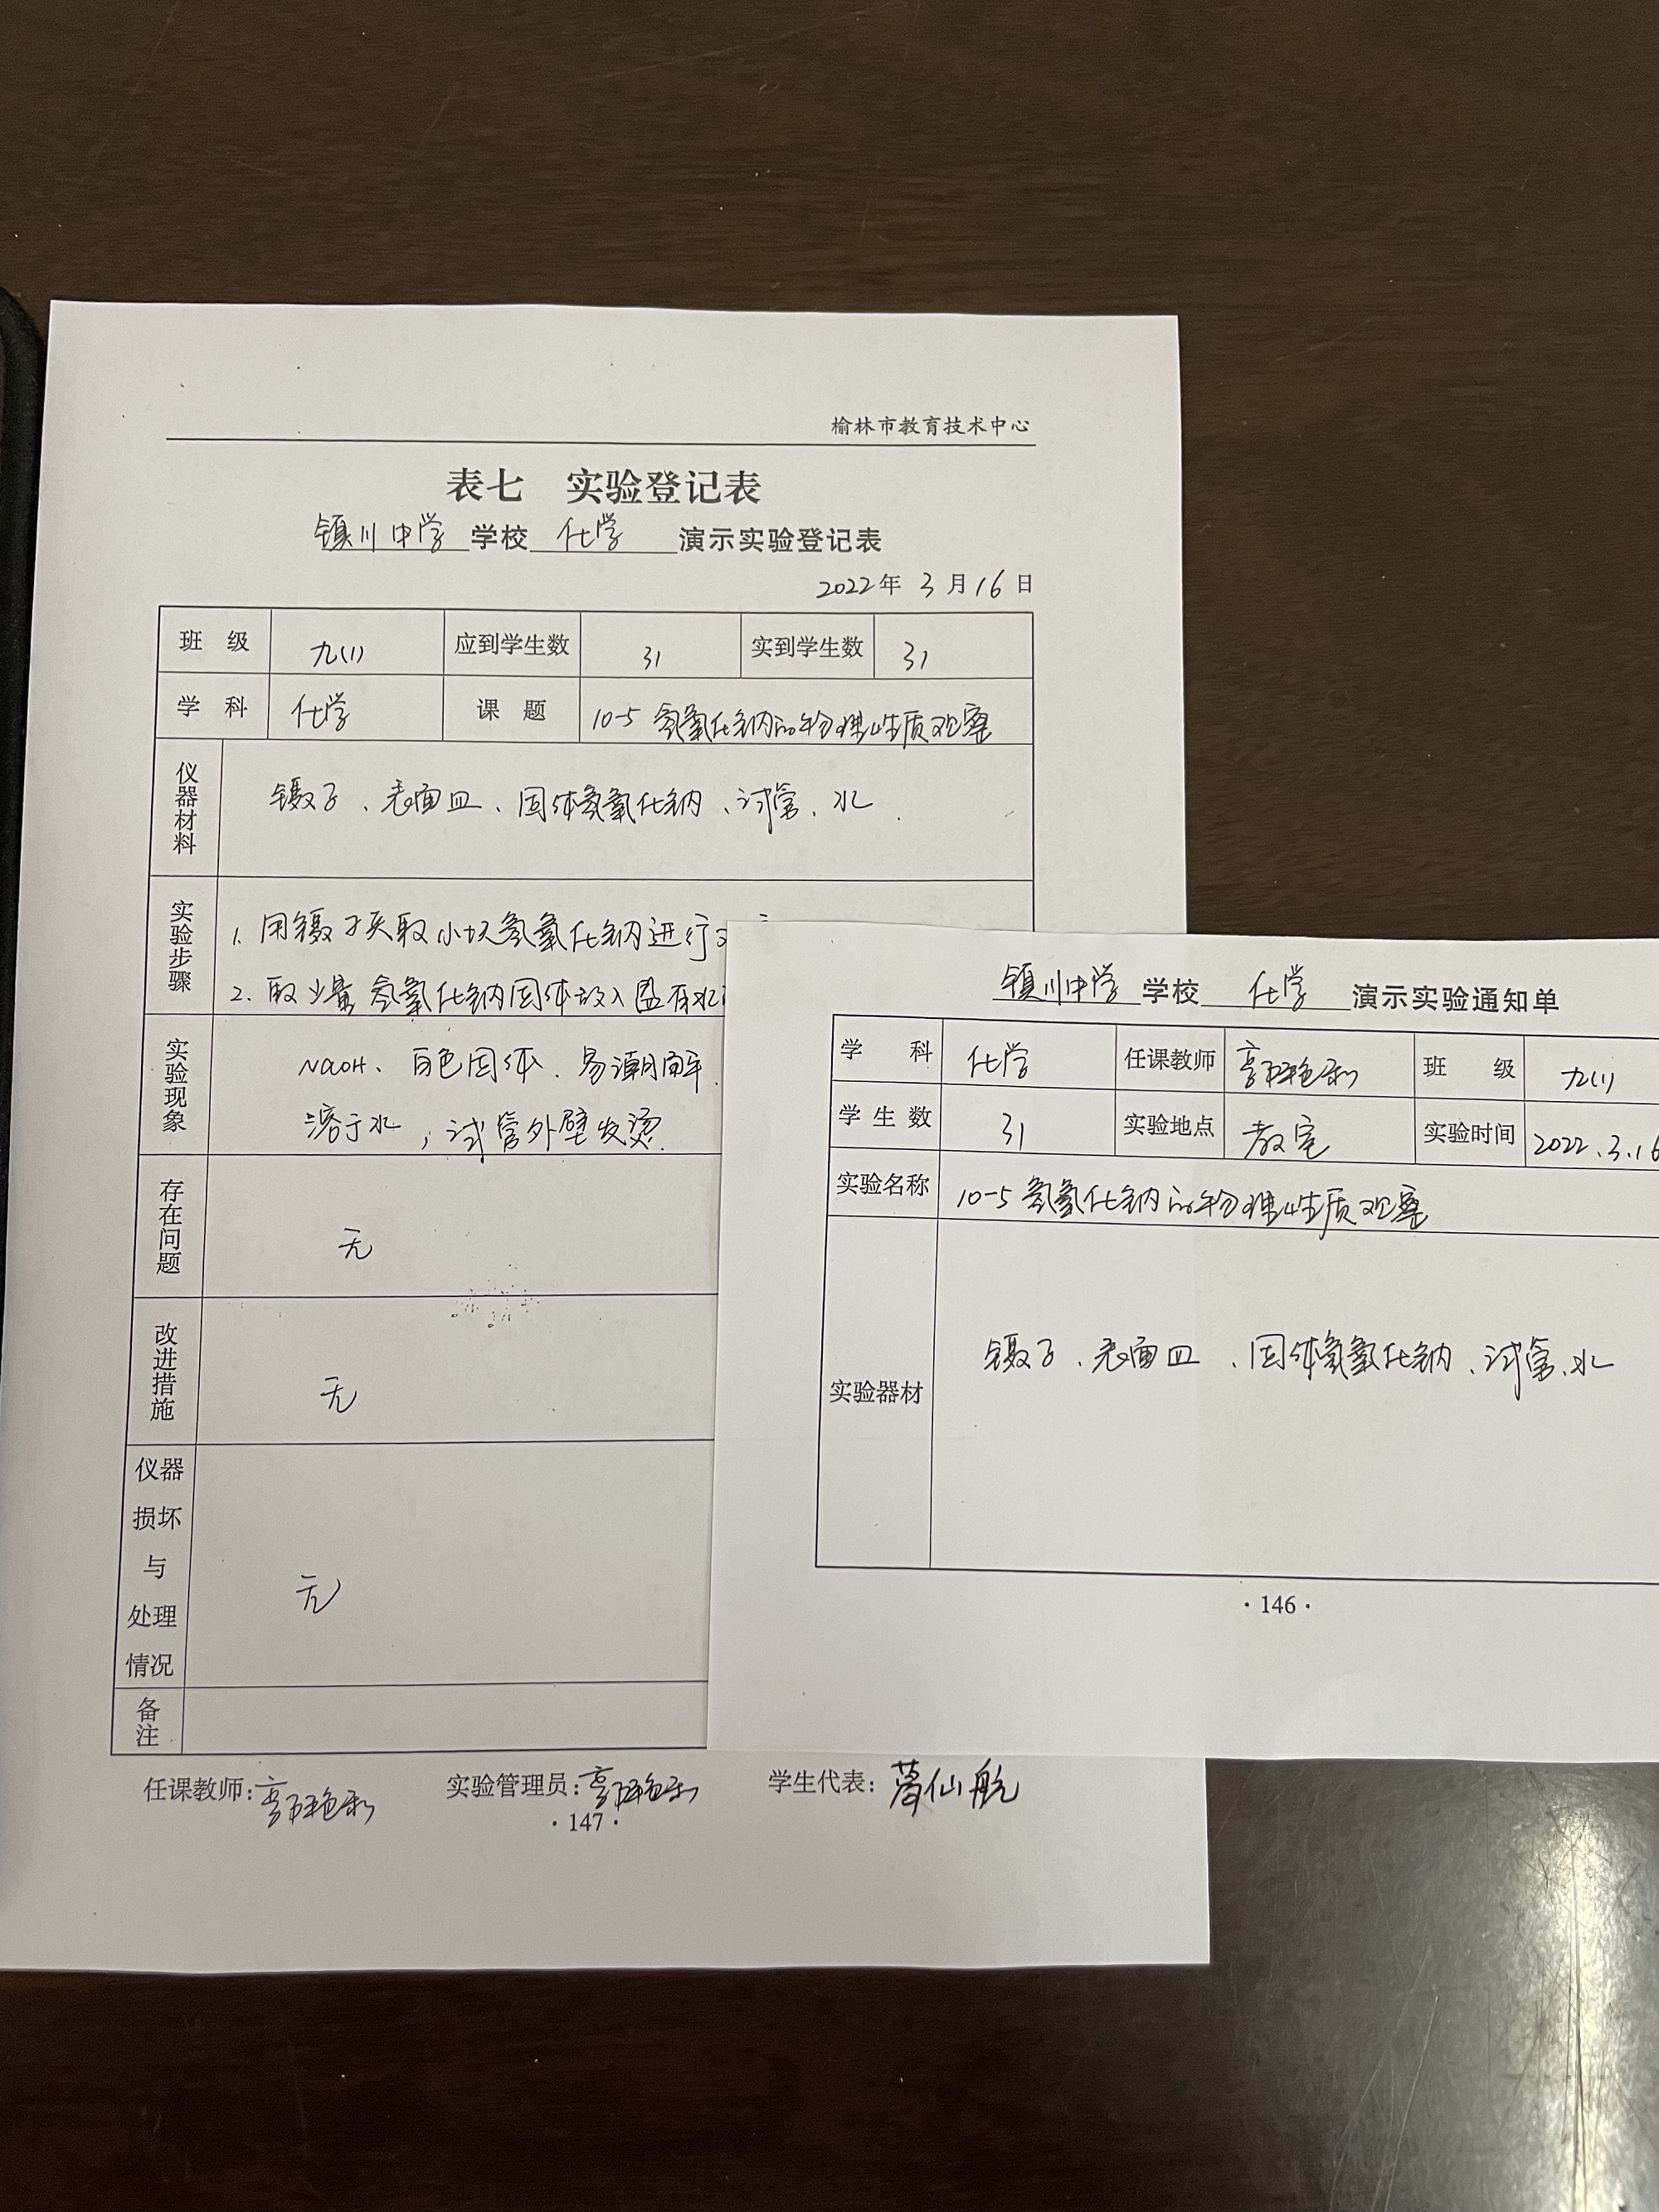 榆林市教育技术中心
表七 实验登记表
镇川中学 学校 化学 演示实验登记表
2022年 3 月 16 日
班 级 九(1) 应到学生数 31 实到学生数 31
学 科 化学 课 题 10-5 氢氧化钠的物理性质观察
仪器材料 镊子、表面皿、固体氢氧化钠、试管、水.
实验步骤 1. 用镊子夹取小块氢氧化钠进行
2. 取少量氢氧化钠固体放入盛有水
实验现象 NaOH、白色固体、易潮解.
溶于水,试管外壁发烫.
存在问题 无
改进措施 无
仪器损坏与处理情况 无
备注
任课教师: 实验管理员: 学生代表: 仙航
·147·
镇川中学 学校 化学 演示实验通知单
学 科 化学 任课教师 班 级 九(1)
学生数 31 实验地点 教室 实验时间 2022.3.16
实验名称 10-5 氢氧化钠的物理性质观察
实验器材 镊子、表面皿、固体氢氧化钠、试管、水
·146·